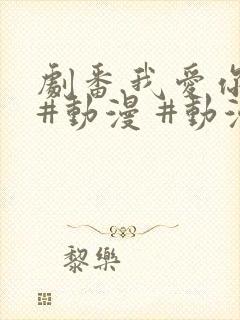 劇番,我愛
#動漫 #動
黎樂